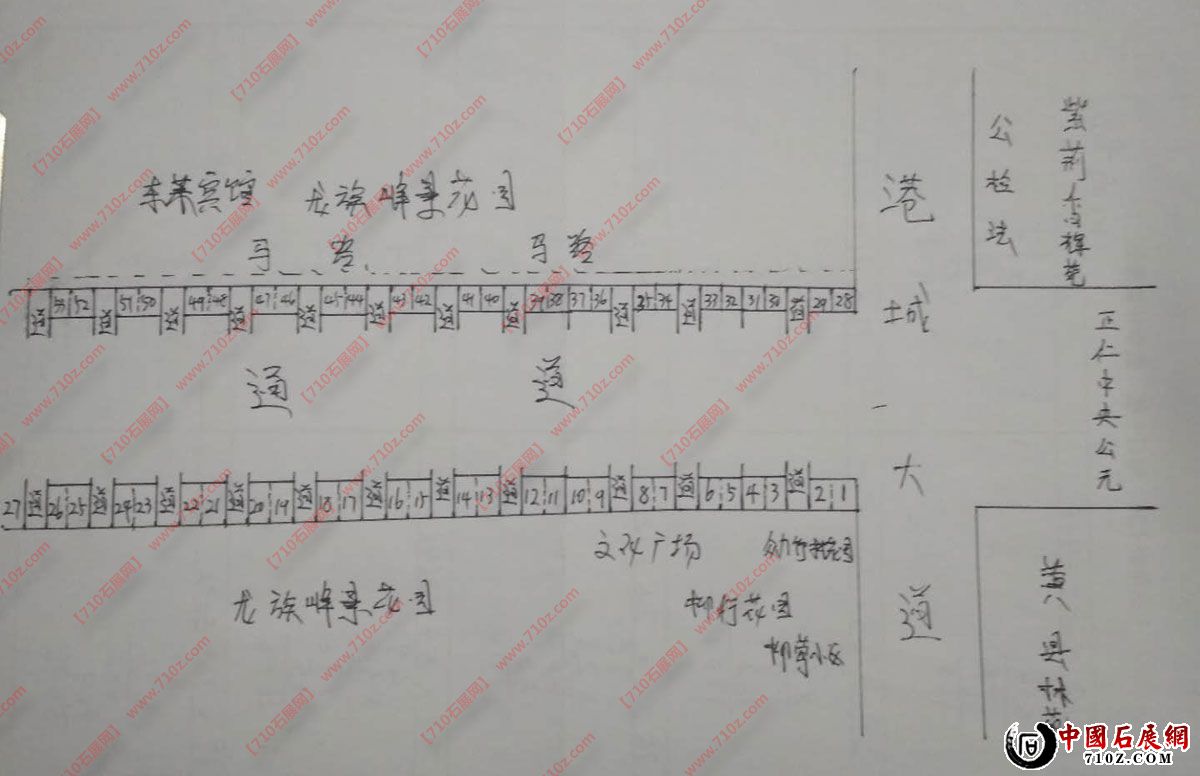 【710石展网】 www.710z.com
东莱宾馆 龙族峰景花园
马路 马路
53 52 通道 51 50 通道 49 48 通道 47 46 通道 45 44 通道 43 42 通道 41 40 通道 39 38 37 36 通道 35 34 通道 33 32 31 30 通道 29 28
通 道
27 通道 26 25 通道 24 23 通道 22 21 通道 20 19 通道 18 17 通道 16 15 通道 14 13 通道 12 11 10 9 通道 8 7 通道 6 5 4 3 通道 2 1
文化广场
龙族峰景花园
柳行花园
小区
港城大道
公检法
紫荆
正仁中央公元
黄县林苑
中國石展網
710Z.COM